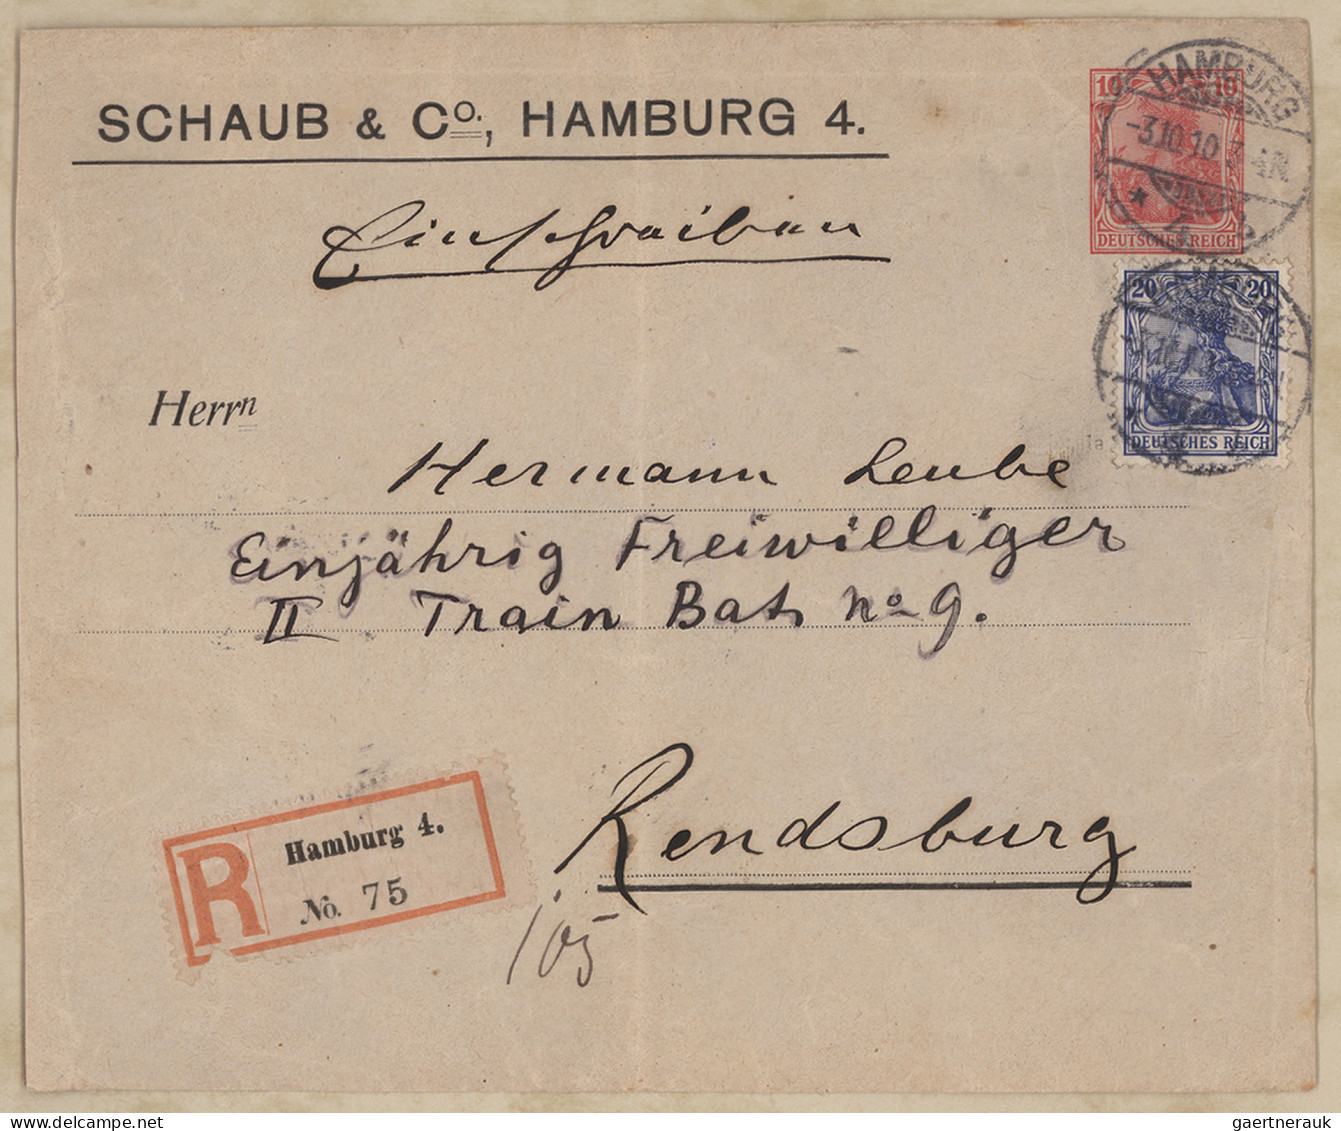 SCHAUB & Co., HAMBURG 4.
Einschreiben
10 10
DEUTSCHES REICH
HAMBURG
-3.10.10
20 20
DEUTSCHES REICH
Herrn
Hermann Leube
Einjährig Freiwilliger
II Train Bat. No 9.
Rendsburg
R
Hamburg 4.
No. 75
105
gaertnerauk